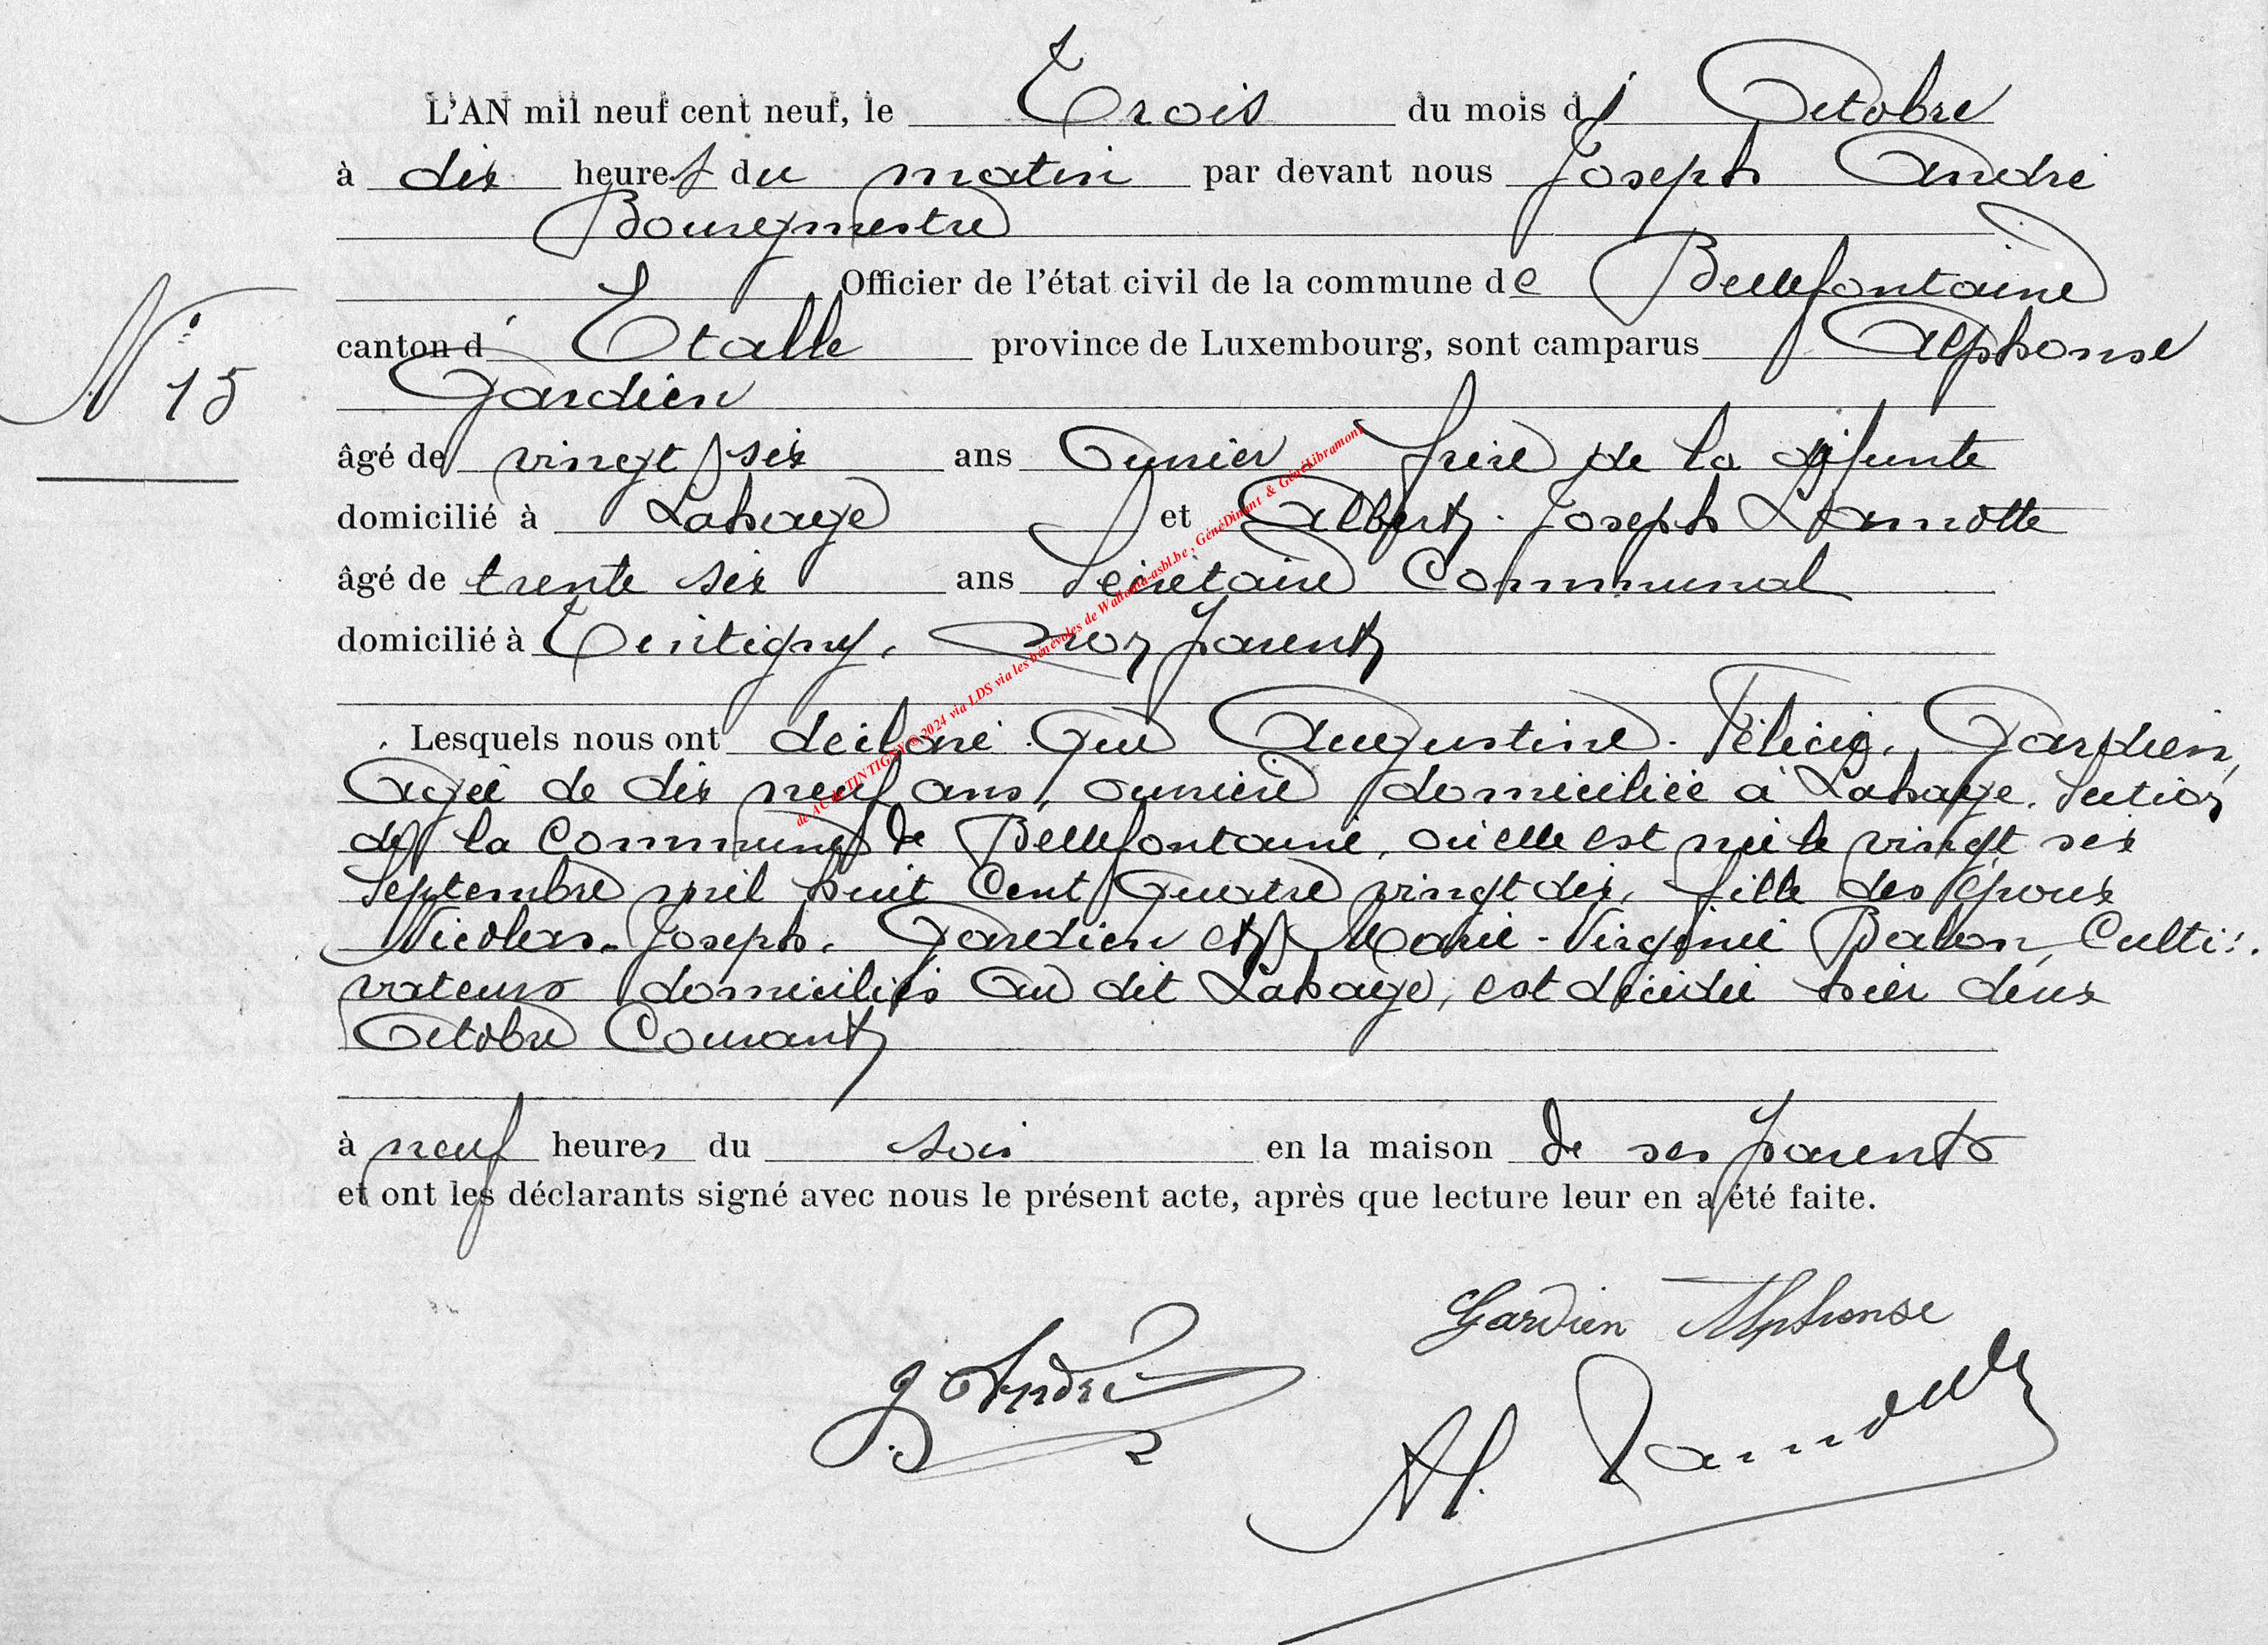 L'AN mil neuf cent neuf, le Trois du mois d' Octobre
à dix heures du matin par devant nous Joseph André
Bourgmestre
Officier de l'état civil de la commune de Bellefontaine
N° 15
canton d' Etalle province de Luxembourg, sont camparus Alphonse
Gardien
âgé de vingt six ans Ouvrier frère de la défunte
domicilié à Lahage et Albert Joseph Lamotte
âgé de trente six ans Secrétaire Communal
domicilié à Tintigny, non parent
Lesquels nous ont déclaré que Augustine Félicie Gardien,
agée de dix neuf ans, ouvrière domiciliée à Lahage, Section
de la Commune de Bellefontaine, où elle est née le vingt six
Septembre mil huit Cent quatre vingt dix, fille des époux
Nicolas-Joseph Gardien et Marie-Virginie Balon, Culti-
vateurs domiciliés au dit Lahage, est décédée hier deux
Octobre Courant
à neuf heures du soir en la maison de ses parents
et ont les déclarants signé avec nous le présent acte, après que lecture leur en a été faite.
Gardien Alphonse
J André
Al. Lamotte
de AC de TINTIGNY © 2024 via LDS via les bénévoles de Wallonia-asbl.be, GénéDinant & GénéLibramont